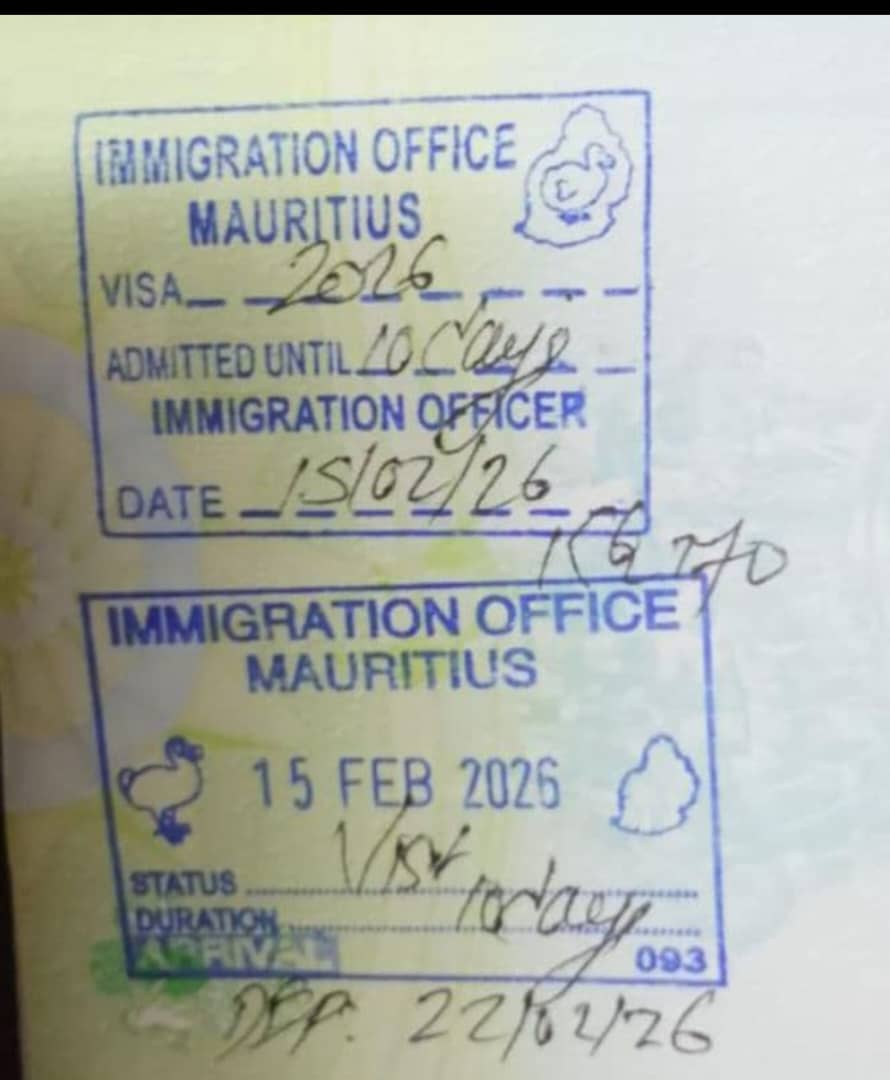 IMMIGRATION OFFICE
MAURITIUS
VISA 2026
ADMITTED UNTIL 10 days
IMMIGRATION OFFICER
DATE 15/02/26
IMMIGRATION OFFICE
MAURITIUS
15 FEB 2026
STATUS Visit
DURATION 10 days
ARRIVAL
093
DEP. 22/02/26